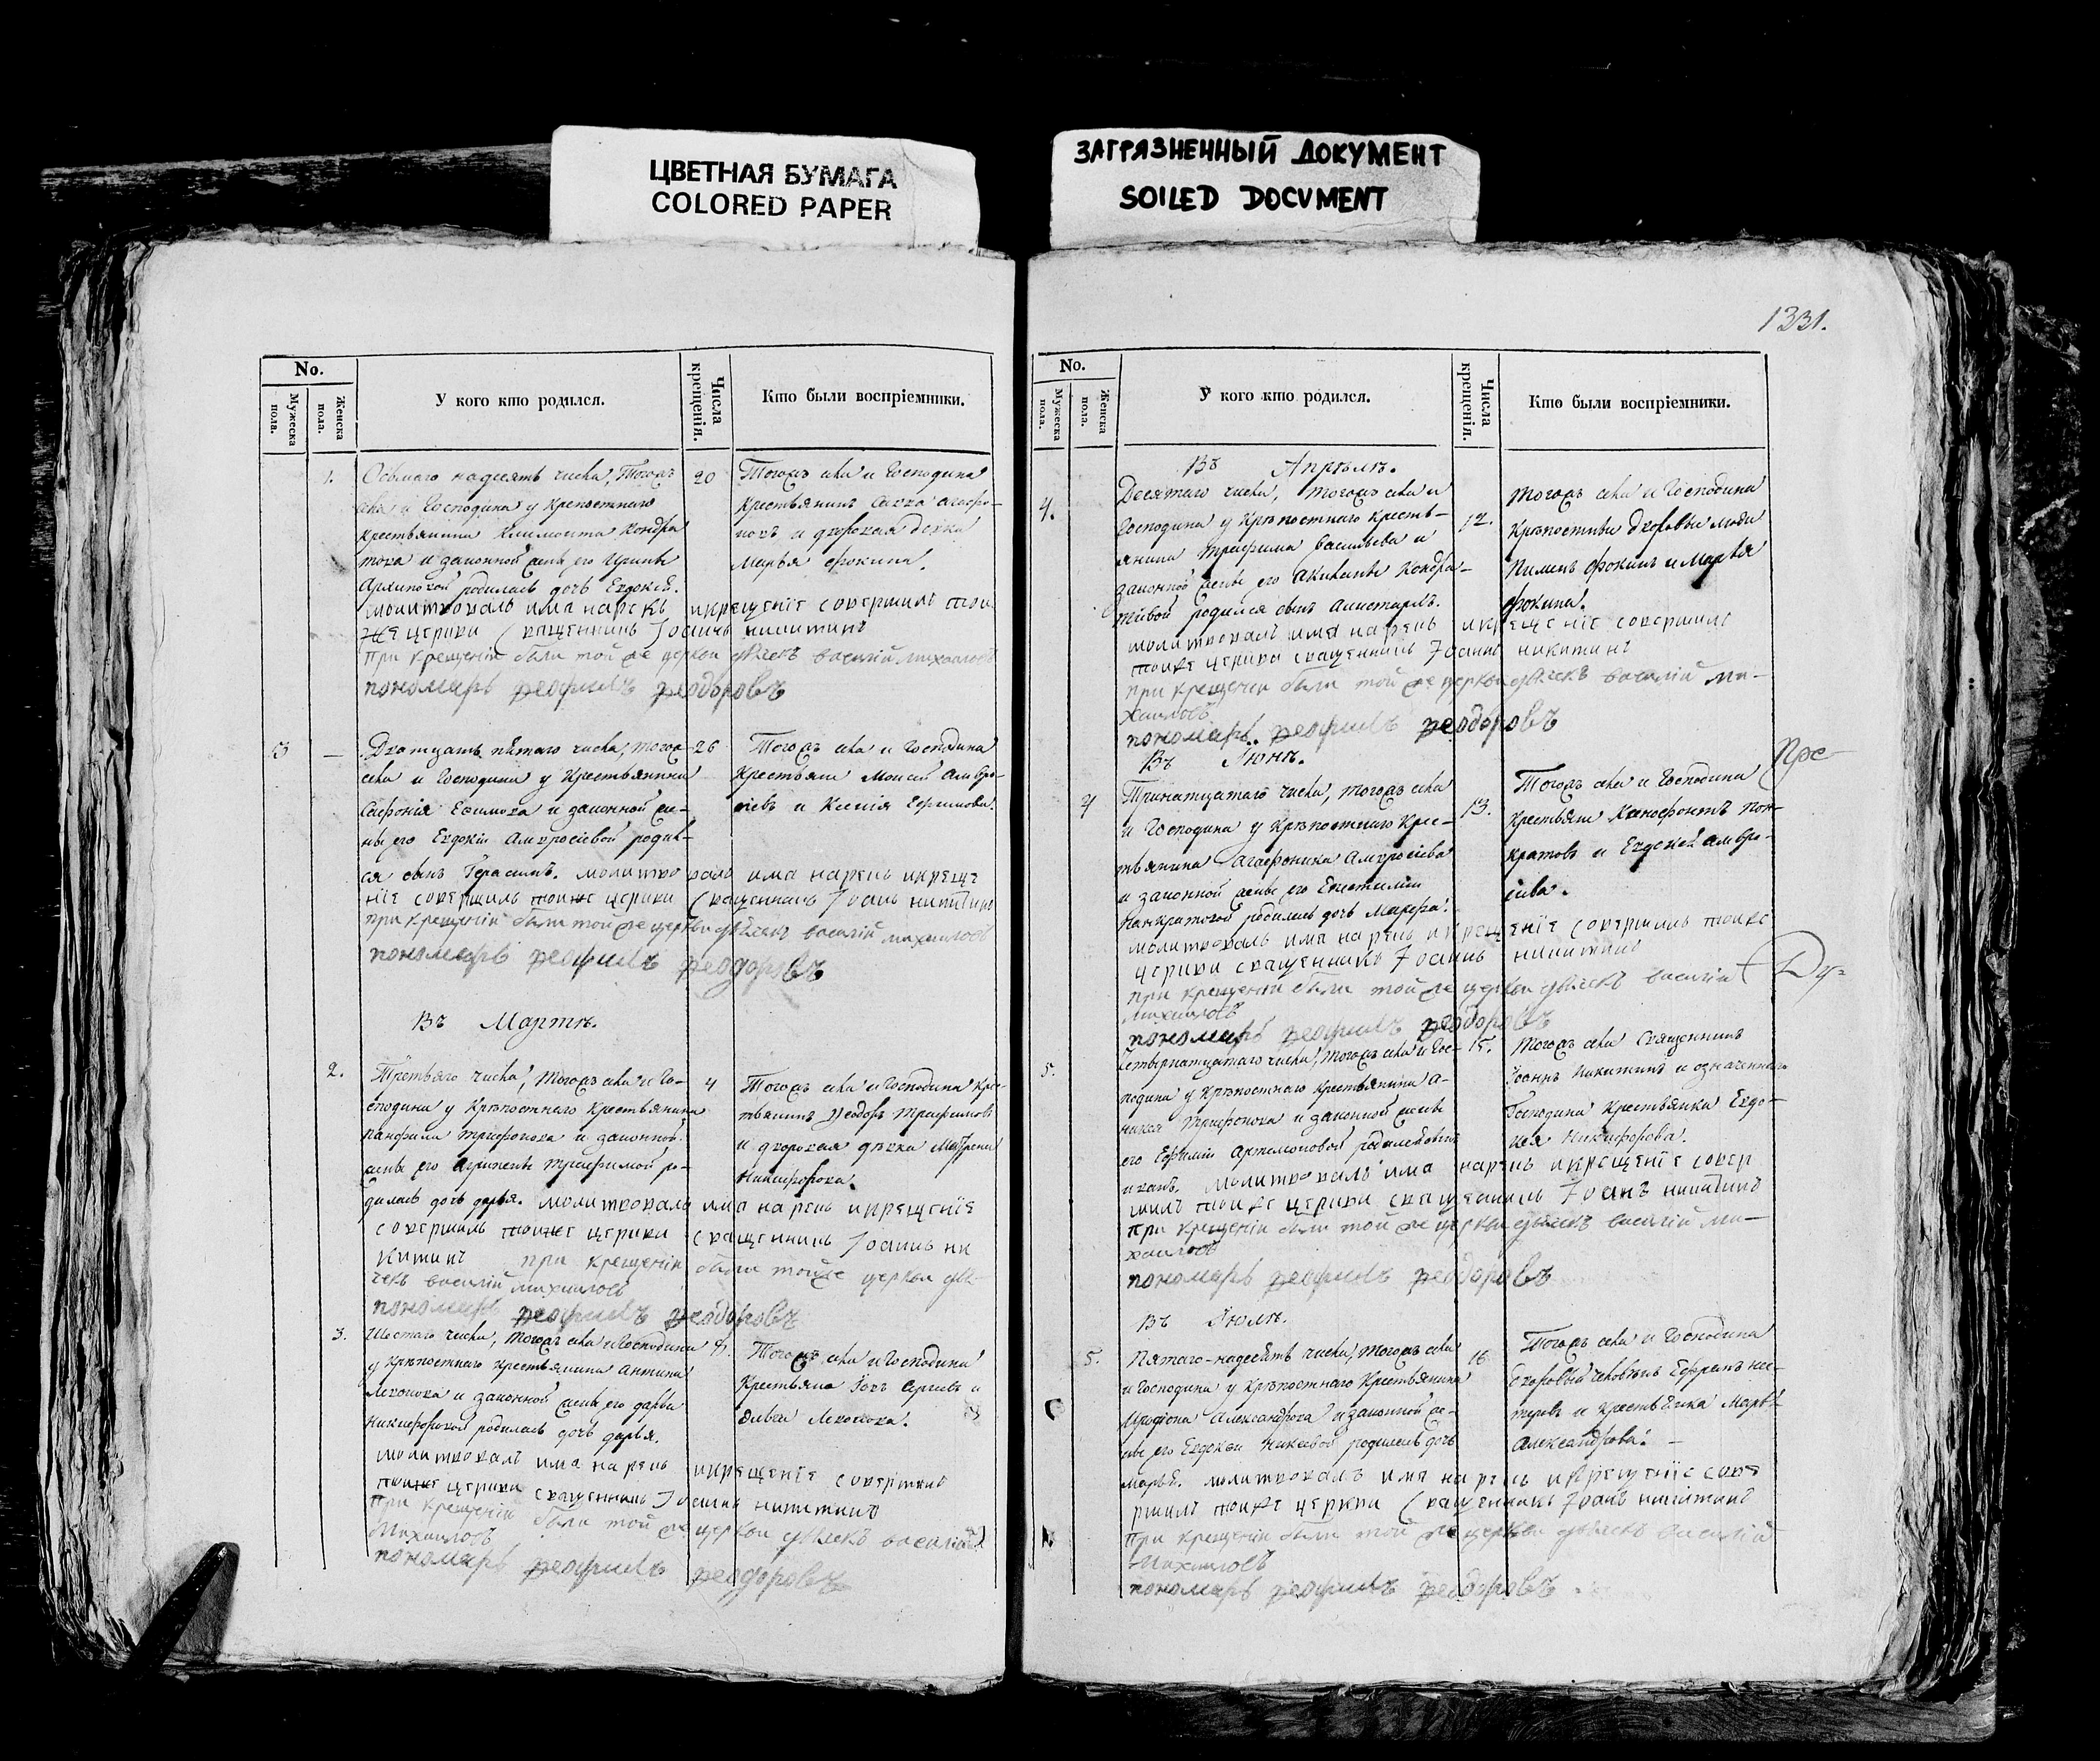 ЦВЕТНАЯ БУМАГА
COLORED PAPER
ЗАГРЯЗНЕННЫЙ ДОКУМЕНТ
SOILED DOCUMENT
1331.
No.
Мужеска пола.
Женска пола.
У кого кто родился.
Числа крещенія.
Кто были воспріемники.
1.
Осьмаго надесять числа, Тогожъ
села и Господина у Крепостнаго
крестьянина Климонта Кондра
това и законной жены его Ирины
родилась дочь Евдокія.
молитвовалъ имя нарекъ и крещеніе совершилъ тои
же церкви священникъ Іоаннъ никитинъ
При крещеніи были той же церкви дьячекъ василій михаиловъ
пономарь феофилъ феодоровъ
20
Тогожъ села и Господина
Крестьянинъ Савва агафо-
новъ и дворовая девка
Марья фокина.
3
—
Дватцать пятаго числа, тогож
села и Господина у Крестьянина
Софонія Ефимова и законной же-
ны его Евдокіи Амвросіевой родил-
ся сынъ Герасимъ. молитвовалъ имя нарекъ и креще
ніе совершилъ тоиже церкви священникъ Іоаннъ никитинъ
при крещеніи были той же церкви дьячекъ василій михаиловъ
пономарь феофилъ феодоровъ
26
Тогожъ села и Господина
Крестьяне Моисей Амвро-
сіевъ и Ксенія Ефимова.
Въ Мартѣ.
2.
Третьяго числа, тогожъ села и Го-
сподина у Крѣпостнаго Крестьянина
Панфила трифонова и законной
жены его Агрипены трофимой ро-
дилась дочь дарья. молитвовалъ имя нарекъ и крещеніе
совершилъ тоиже церкви священникъ Іоаннъ ни
китинъ при крещеніи были тойже церкви дья-
чекъ василій михаиловъ
пономарь феофилъ феодоровъ
4
Тогожъ села и Господина Кре-
стьянинъ Феодоръ трофимовъ
и дворовая дѣвка Матрона
Никифорова.
3.
Шестаго числа, тогожъ села и Господина
у Крѣпостнаго крестьянина Антипа
Леонова и законной жены его дарьи
Никифоровой родилась дочь дарья.
молитвовалъ имя нарекъ и крещеніе совершилъ
тоиже церкви священникъ Іоаннъ никитинъ
При крещеніи были той же церкви дьячекъ василій
Михаиловъ
пономарь феофилъ феодоровъ
8.
Тогожъ села и Господина
Крестьяне Іовъ Сергіевъ и
Леонова.
No.
Мужеска пола.
Женска пола.
У кого кто родился.
Числа крещенія.
Кто были воспріемники.
Въ Апрѣлѣ.
4.
Десятаго числа, тогожъ села и
Господина у Крѣпостнаго Кресть-
янина Трофима Васильева и
законной жены его Акилины Кондра-
тьевой родился сынъ
молитвовалъ имя нарекъ и крещеніе совершилъ
тоиже церкви священникъ Іоаннъ никитинъ
при крещеніи были той же церкви дьячекъ василій ми-
хаиловъ
пономарь феофилъ феодоровъ
12.
Тогожъ села и Господина
Крѣпостныи дворовыи люди
Пименъ фокинъ и Марья
фокина.
Въ Іюнѣ.
4
Тринатцатаго числа, тогожъ села
и Господина у Крѣпостнаго Крес-
тьянина Агафоника Амвросіева
и законной жены его
Панкратовой родилась дочь Марфа.
молитвовалъ имя нарекъ и крещеніе совершилъ тоиже
церкви священникъ Іоаннъ никитинъ
при крещеніи были той же церкви дьячекъ василій
михаиловъ
пономарь феофилъ феодоровъ
13.
Тогожъ села и Господина
крестьяне Ксенофонтъ Пан-
кратовъ и Евдокія амвро-
сіева.
Пре-
Ду-
5.
Четвернатцатаго числа, тогожъ села и Гос-
подина у Крѣпостнаго крестьянина А-
никія Трифонова и законной жены
его Ефиміи Артемоновой родился сынъ
иванъ. молитвовалъ имя нарекъ и крещеніе совер
шилъ тоиже церкви священникъ Іоанъ никитинъ
при крещеніи были той же церкви дьячекъ василій ми-
хаиловъ
пономарь феофилъ феодоровъ
15.
Тогожъ села Священникъ
Іоаннъ Никитинъ и означеннаго
Господина Крестьянка Евдо-
кія Никифорова.
Въ Іюлѣ.
5.
Пятаго-надесять числа, тогожъ села
и Господина у Крѣпостнаго Крестьянина
Иродіона Александрова и законной же-
ны его Евдокіи родилась дочь
марья. молитвовалъ имя нарекъ и крещеніе сове
ршилъ тоиже церкви священникъ Іоанъ никитинъ
При крещеніи были той же церкви дьячекъ василій
Михаиловъ
пономарь феофилъ феодоровъ
16
Тогожъ села и Господина
дворовый человѣкъ Ефремъ
и крестьянка Марья
Александрова. —